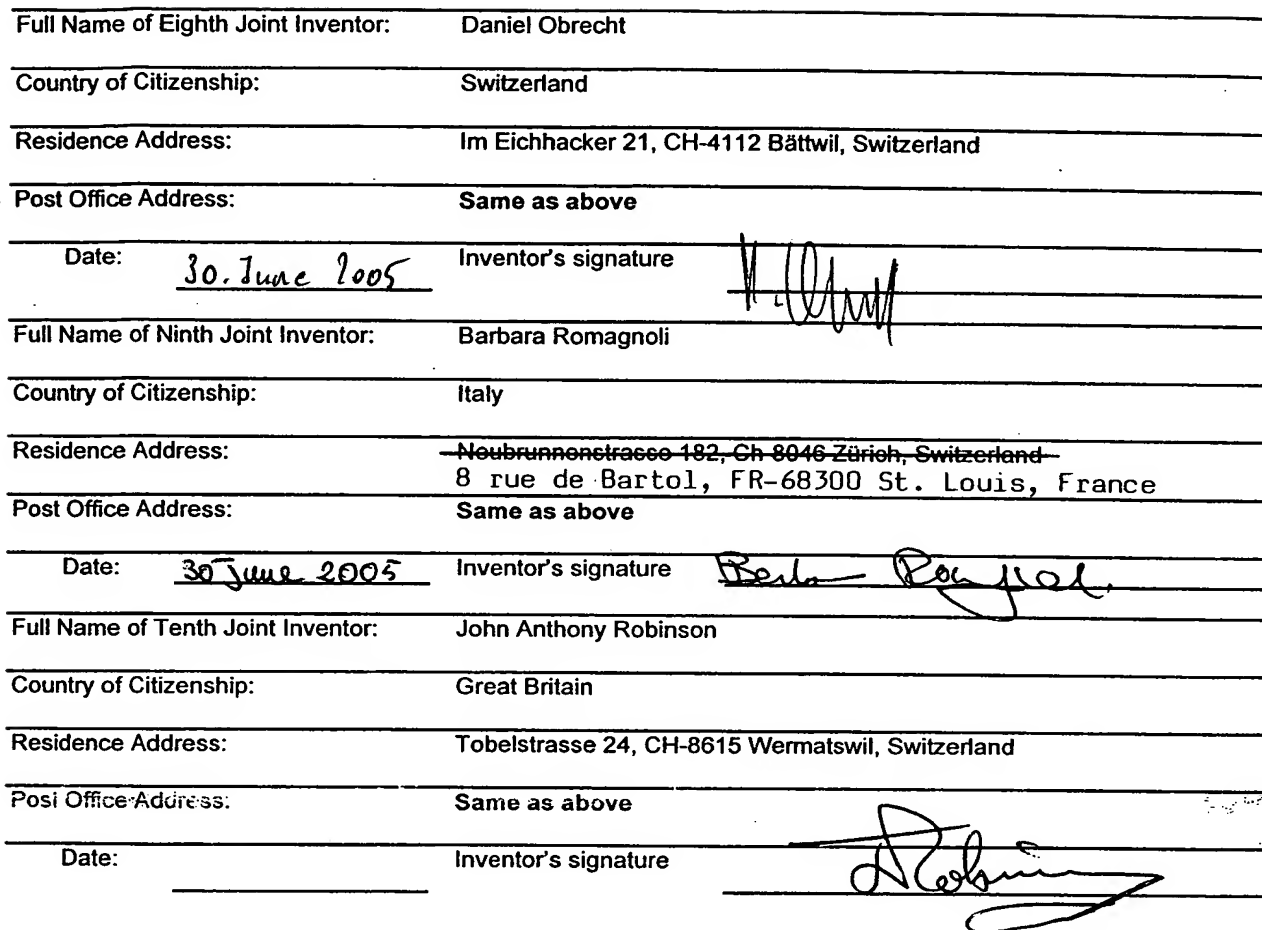 Full Name of Eighth Joint Inventor: Daniel Obrecht
Country of Citizenship: Switzerland
Residence Address: Im Eichhacker 21, CH-4112 Bättwil, Switzerland
Post Office Address: Same as above
Date: 30. June 2005 Inventor's signature
Full Name of Ninth Joint Inventor: Barbara Romagnoli
Country of Citizenship: Italy
Residence Address: Neubrunnenstrasse 182, Ch 8046 Zürich, Switzerland
8 rue de Bartol, FR-68300 St. Louis, France
Post Office Address: Same as above
Date: 30 June 2005 Inventor's signature
Full Name of Tenth Joint Inventor: John Anthony Robinson
Country of Citizenship: Great Britain
Residence Address: Tobelstrasse 24, CH-8615 Wermatswil, Switzerland
Post Office Address: Same as above
Date: Inventor's signature